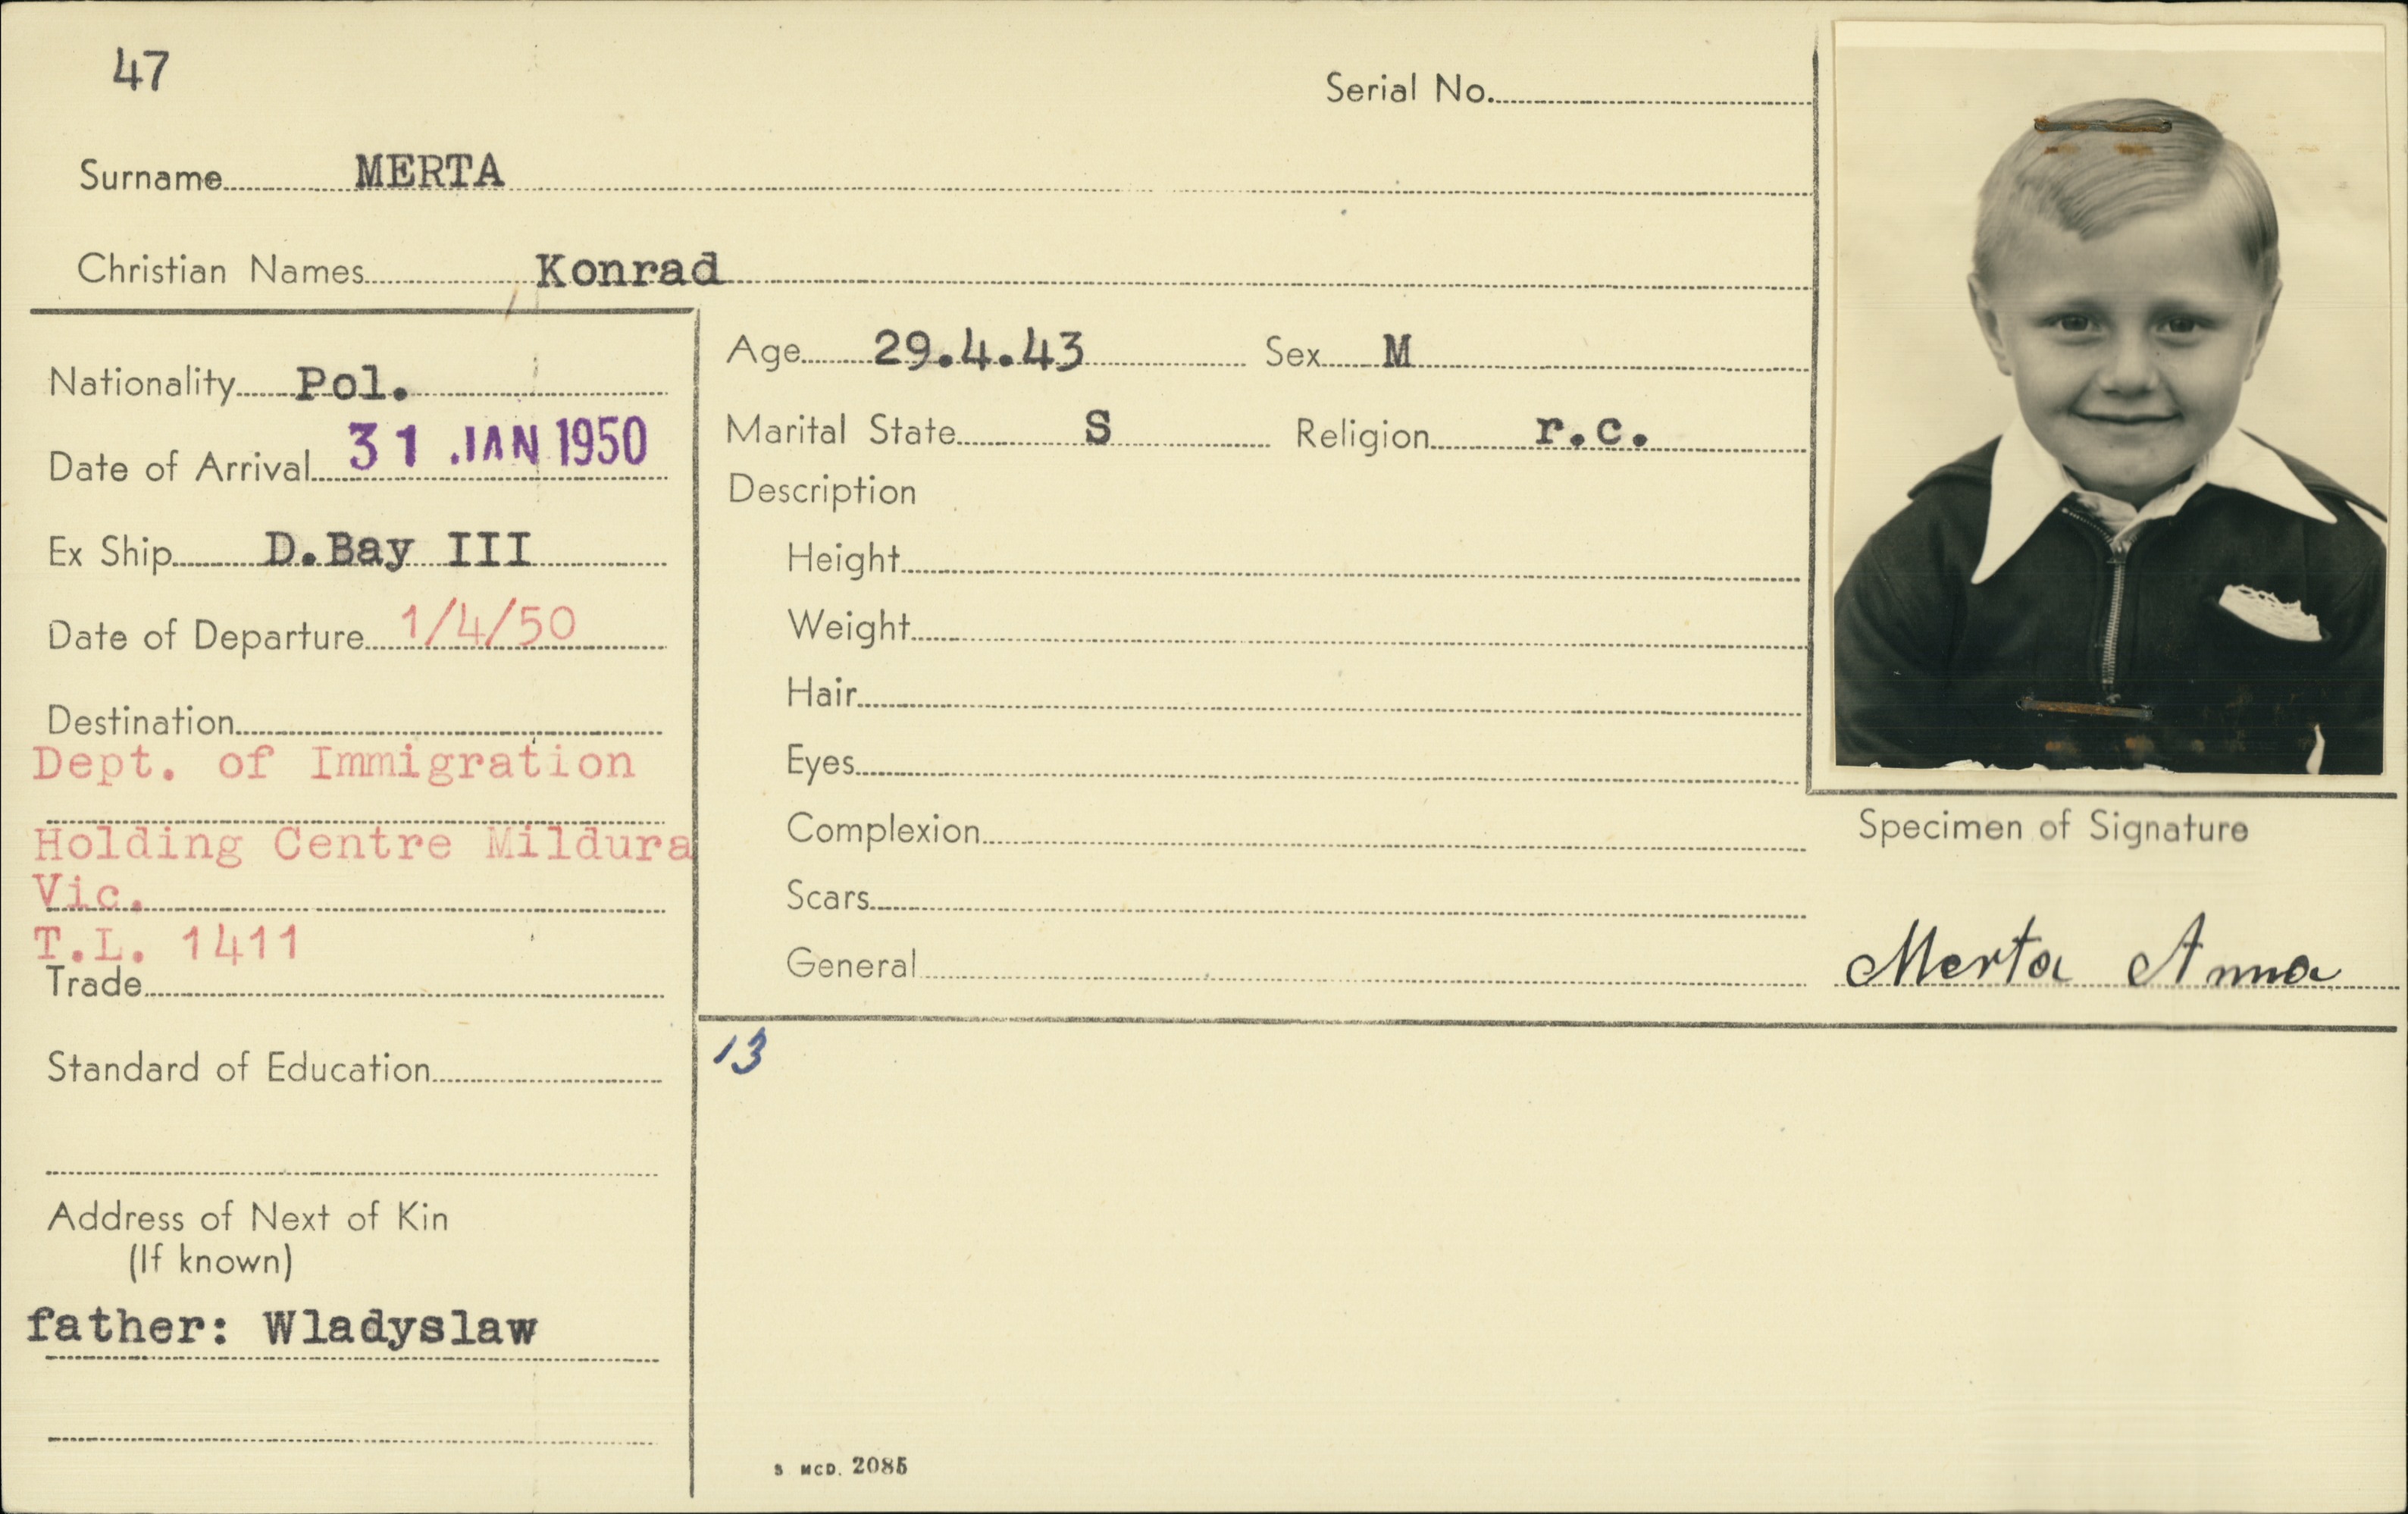 47
Serial No.
Surname MERTA
Christian Names Konrad
Nationality Pol.
Date of Arrival 31 JAN 1950
Ex Ship D.Bay III
Date of Departure 1/4/50
Destination
Dept. of Immigration
Holding Centre Mildura
Vic.
T.L. 1411
Trade
Standard of Education
Address of Next of Kin
(If known)
father: Wladyslaw
Age 29.4.43 Sex M
Marital State S Religion r.c.
Description
Height
Weight
Hair
Eyes
Complexion
Scars
General
Specimen of Signature
Merta Anna
13
S MCD. 2085